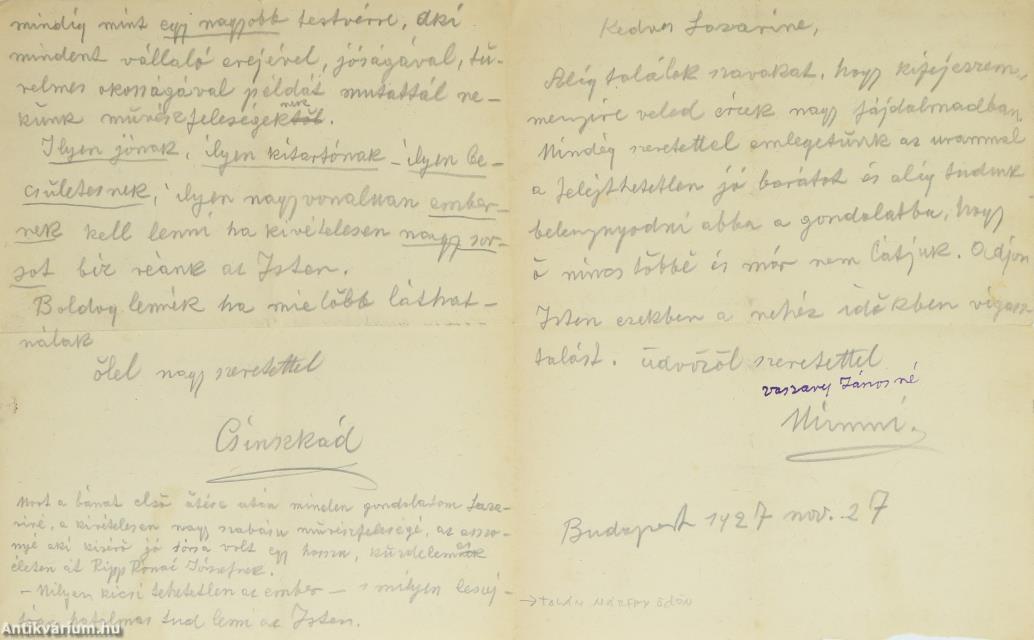 mindíg mint egy nagyobb testvérre, aki
mindent vállaló erejével, jóságával, tü-
relmes okosságával példát mutattál ne-
künk művészfeleségek
nek
Ilyen jónak, ilyen kitartónak – ilyen be-
csületesnek, ilyen nagyvonaluan ember-
nek kell lenni ha kivételesen nagy sor-
sot bíz reánk az Isten.
Boldog lennék ha mielőbb láthat-
nálak
ölel nagy szeretettel
Csinszkád
Mert a bánat első ütése után minden gondolatom Laza-
riné, a kivételesen nagy szabásu művészfeleségé, az asszo-
nyé aki kisérő jó társa volt egy hosszu, küzdelmes
életen át Rippl Rónai Józsefnek.
– Milyen kicsi tehetetlen az ember – s milyen
hatalmas tud lenni az Isten.
Kedves Lazarine,
Alig találok szavakat, hogy kifejezzem,
menyire veled érzek nagy fájdalmadban.
Mindég szeretettel emlegetünk az urammal
a felejthetetlen jó barátot és alig tudunk
belenyugodni abba a gondolatba, hogy
ő nincs többé és már nem látjuk. Adjon
Isten ezekben a nehéz időkben vigasz-
talást. Üdvözöl szeretettel
Vaszary Jánosné
Mimmi.
Budapest 1927 nov. 27
→ talán Márffy Ödön
Antikvárium.hu